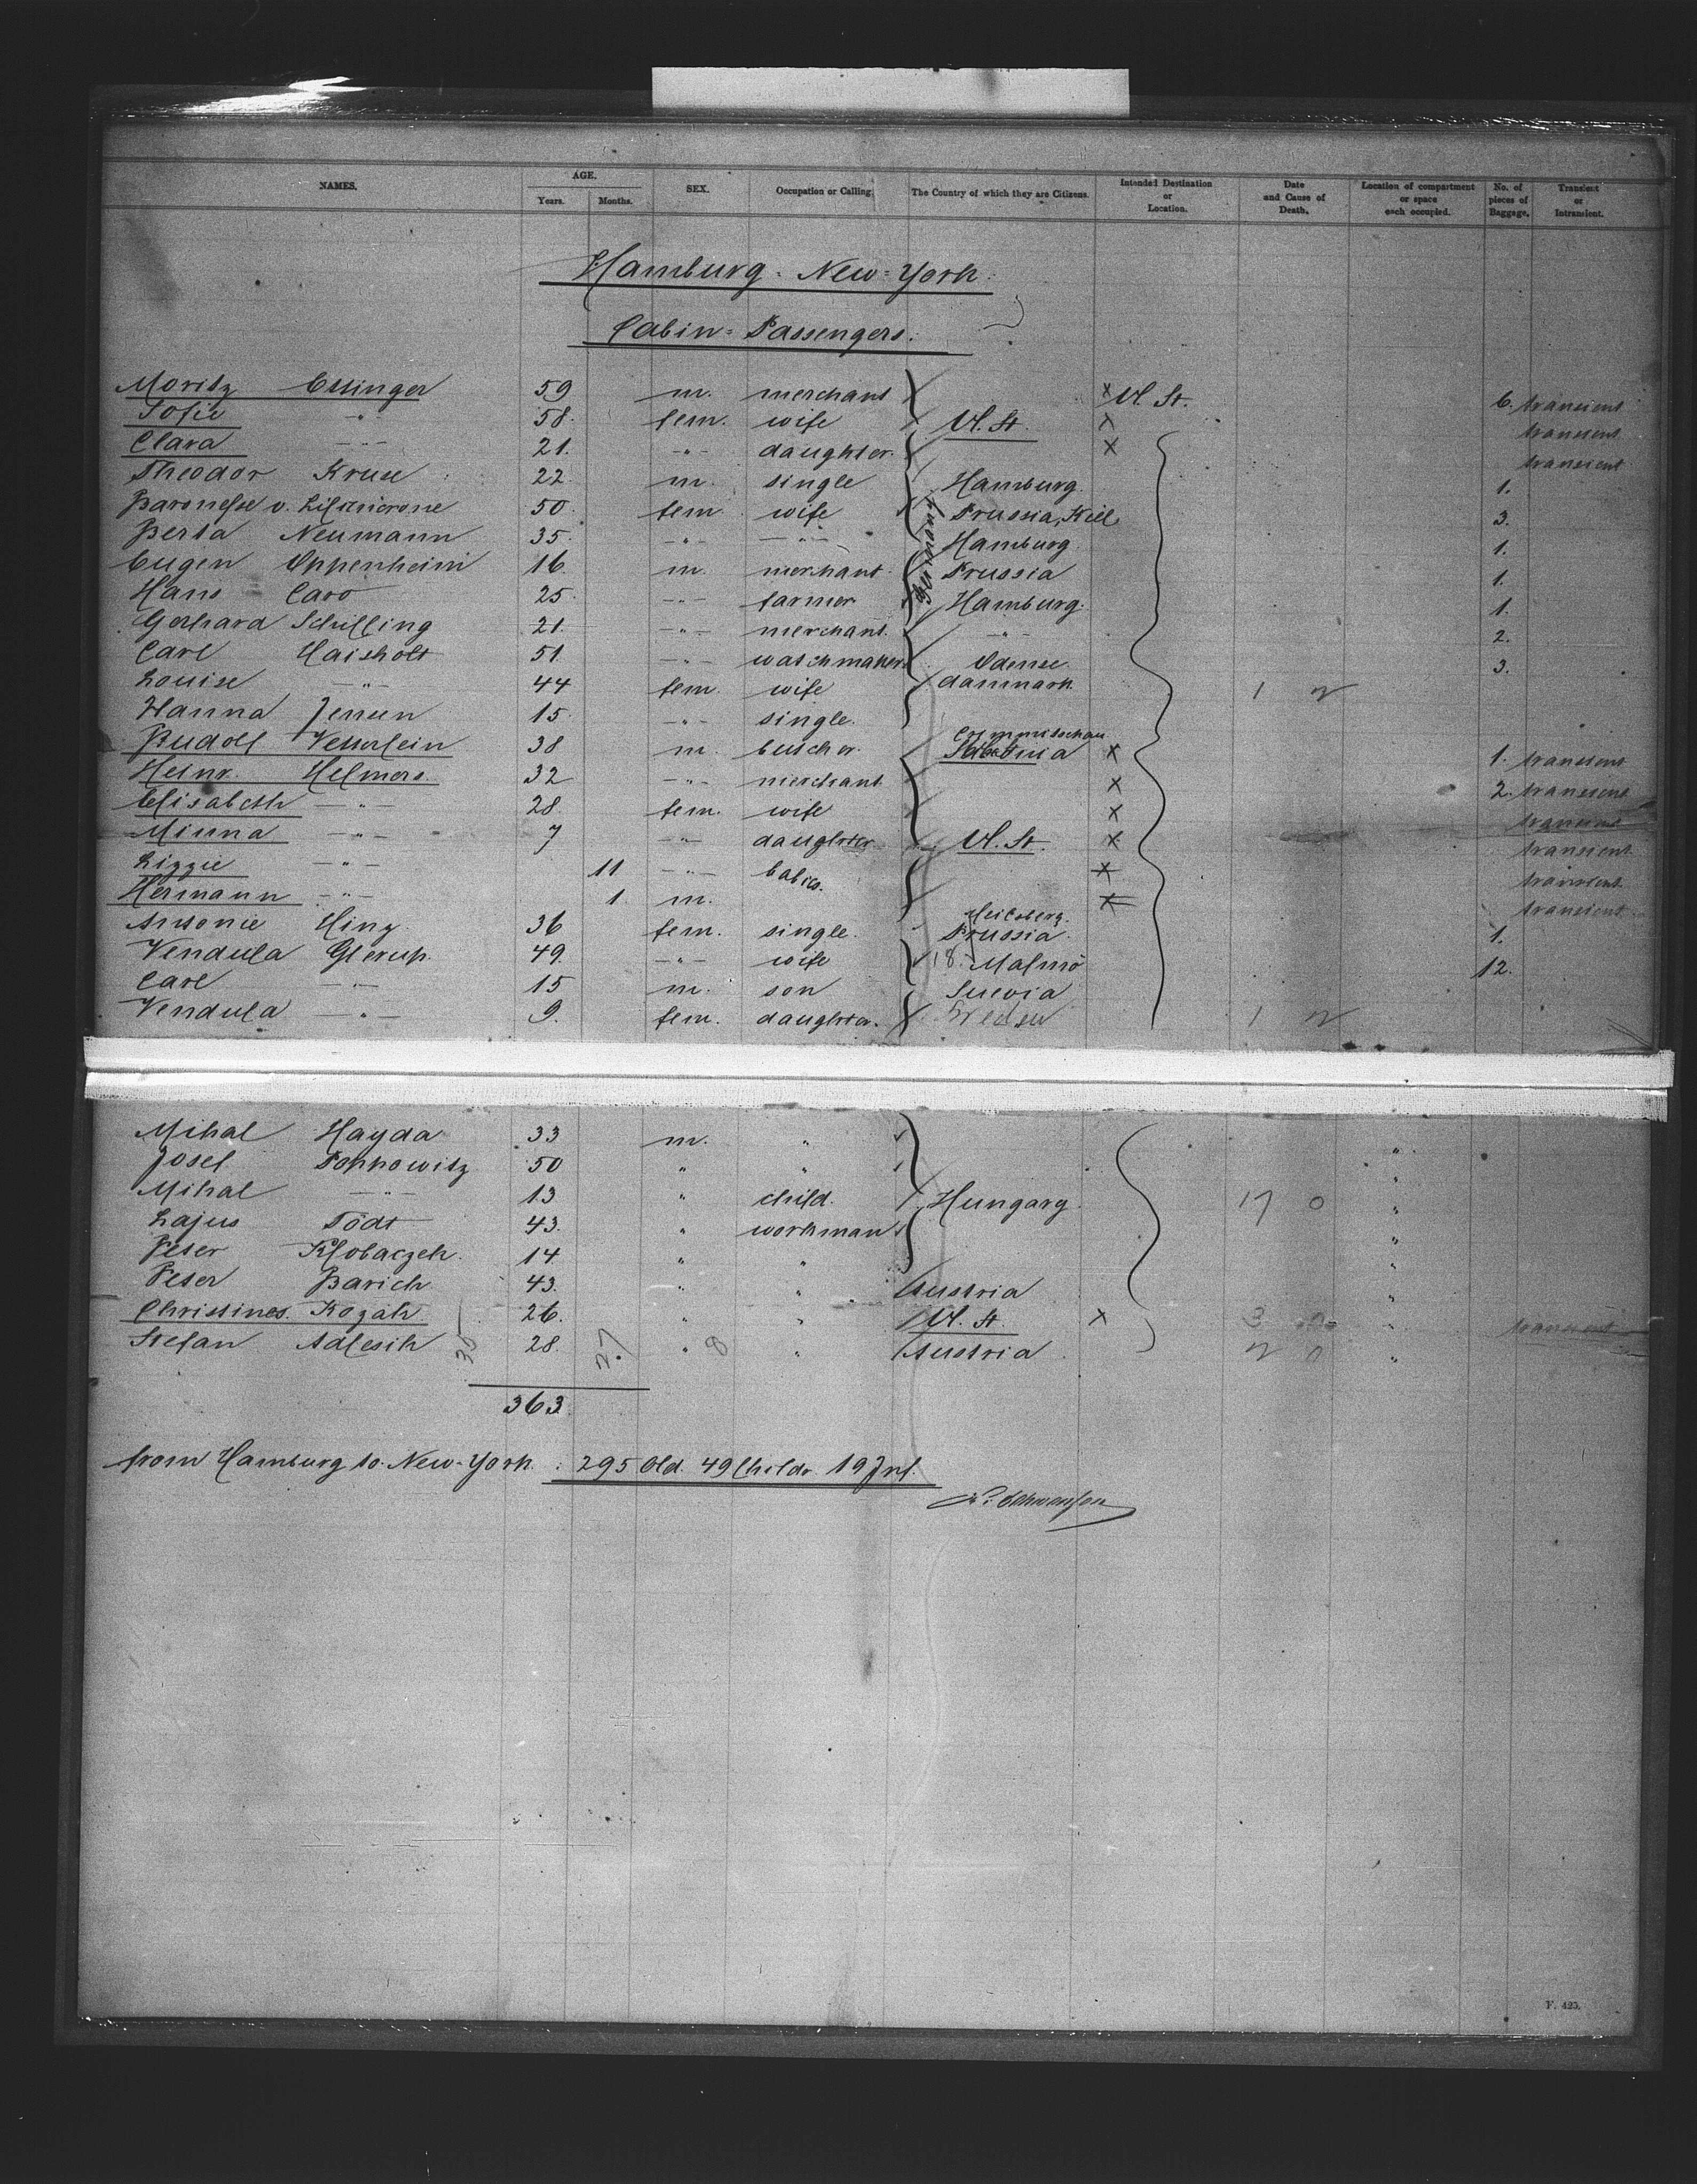 NAMES. AGE. Years. Months. SEX. Occupation or Calling. The Country of which they are Citizens. Intended Destination or Location. Date and Cause of Death. Location of compartment or space each occupied. No. of pieces of Baggage. Transient or Intransient.
Hamburg = New = York.
Cabin = Passengers.
Moritz Ettinger 59 m. merchant × U. St. 6. transient
Sofie " 58. fem. wife U. St. × transient
Clara " 21. " daughter. × transient
Theodor Kruse 22. m. single Hamburg. 1.
Baronesse v. 50. fem wife Prussia, Kiel 3.
Berta Neumann 35. " " Hamburg. 1.
Eugen Oppenheim 16. m. merchant Prussia 1.
Hans Caro 25. " farmer Hamburg. 1.
Gerhard Schilling 21. " merchant. " 2.
Carl Haisholt 51. " watchmaker Odense 3.
Louise " 44 fem. wife danmark. 1
Hanna Jensen 15. " single.
Rudolf Vetterlein 38 m. butcher. Crimmitschau × 1. transient
Heinr. Helmers 32 " merchant × 2. transient
Elisabeth " 28. fem. wife × transient
Minna " 7 " daughter U. St. × transient
Lizzie " 11 " babies. × transient
Hermann " 1 m. × transient
Antonie Hinz 36 fem. single. Heilsberg. Prussia. 1.
Vendula Glerup. 49. " wife 18. Malmö 12.
Carl " 15 m. son Suevia
Vendula " 9. fem. daughter. Sweden 1
Mihal Hayda 33 m. " "
Josef Popkowitz 50 " " "
Mihal " 13 " child. Hungary. 17 0 "
Lajus Tódt 43. " workman "
Peter Klobaczek. 14 " " "
Peter Barich 43. " " Austria "
Christines. Kozak 26. " " U. St. × 3 0 " transient
Stefan Adlesik 28. " " Austria "
363.
from Hamburg to New-York : 295 Old. 49 Childr. 19 Inf.
F. 425.